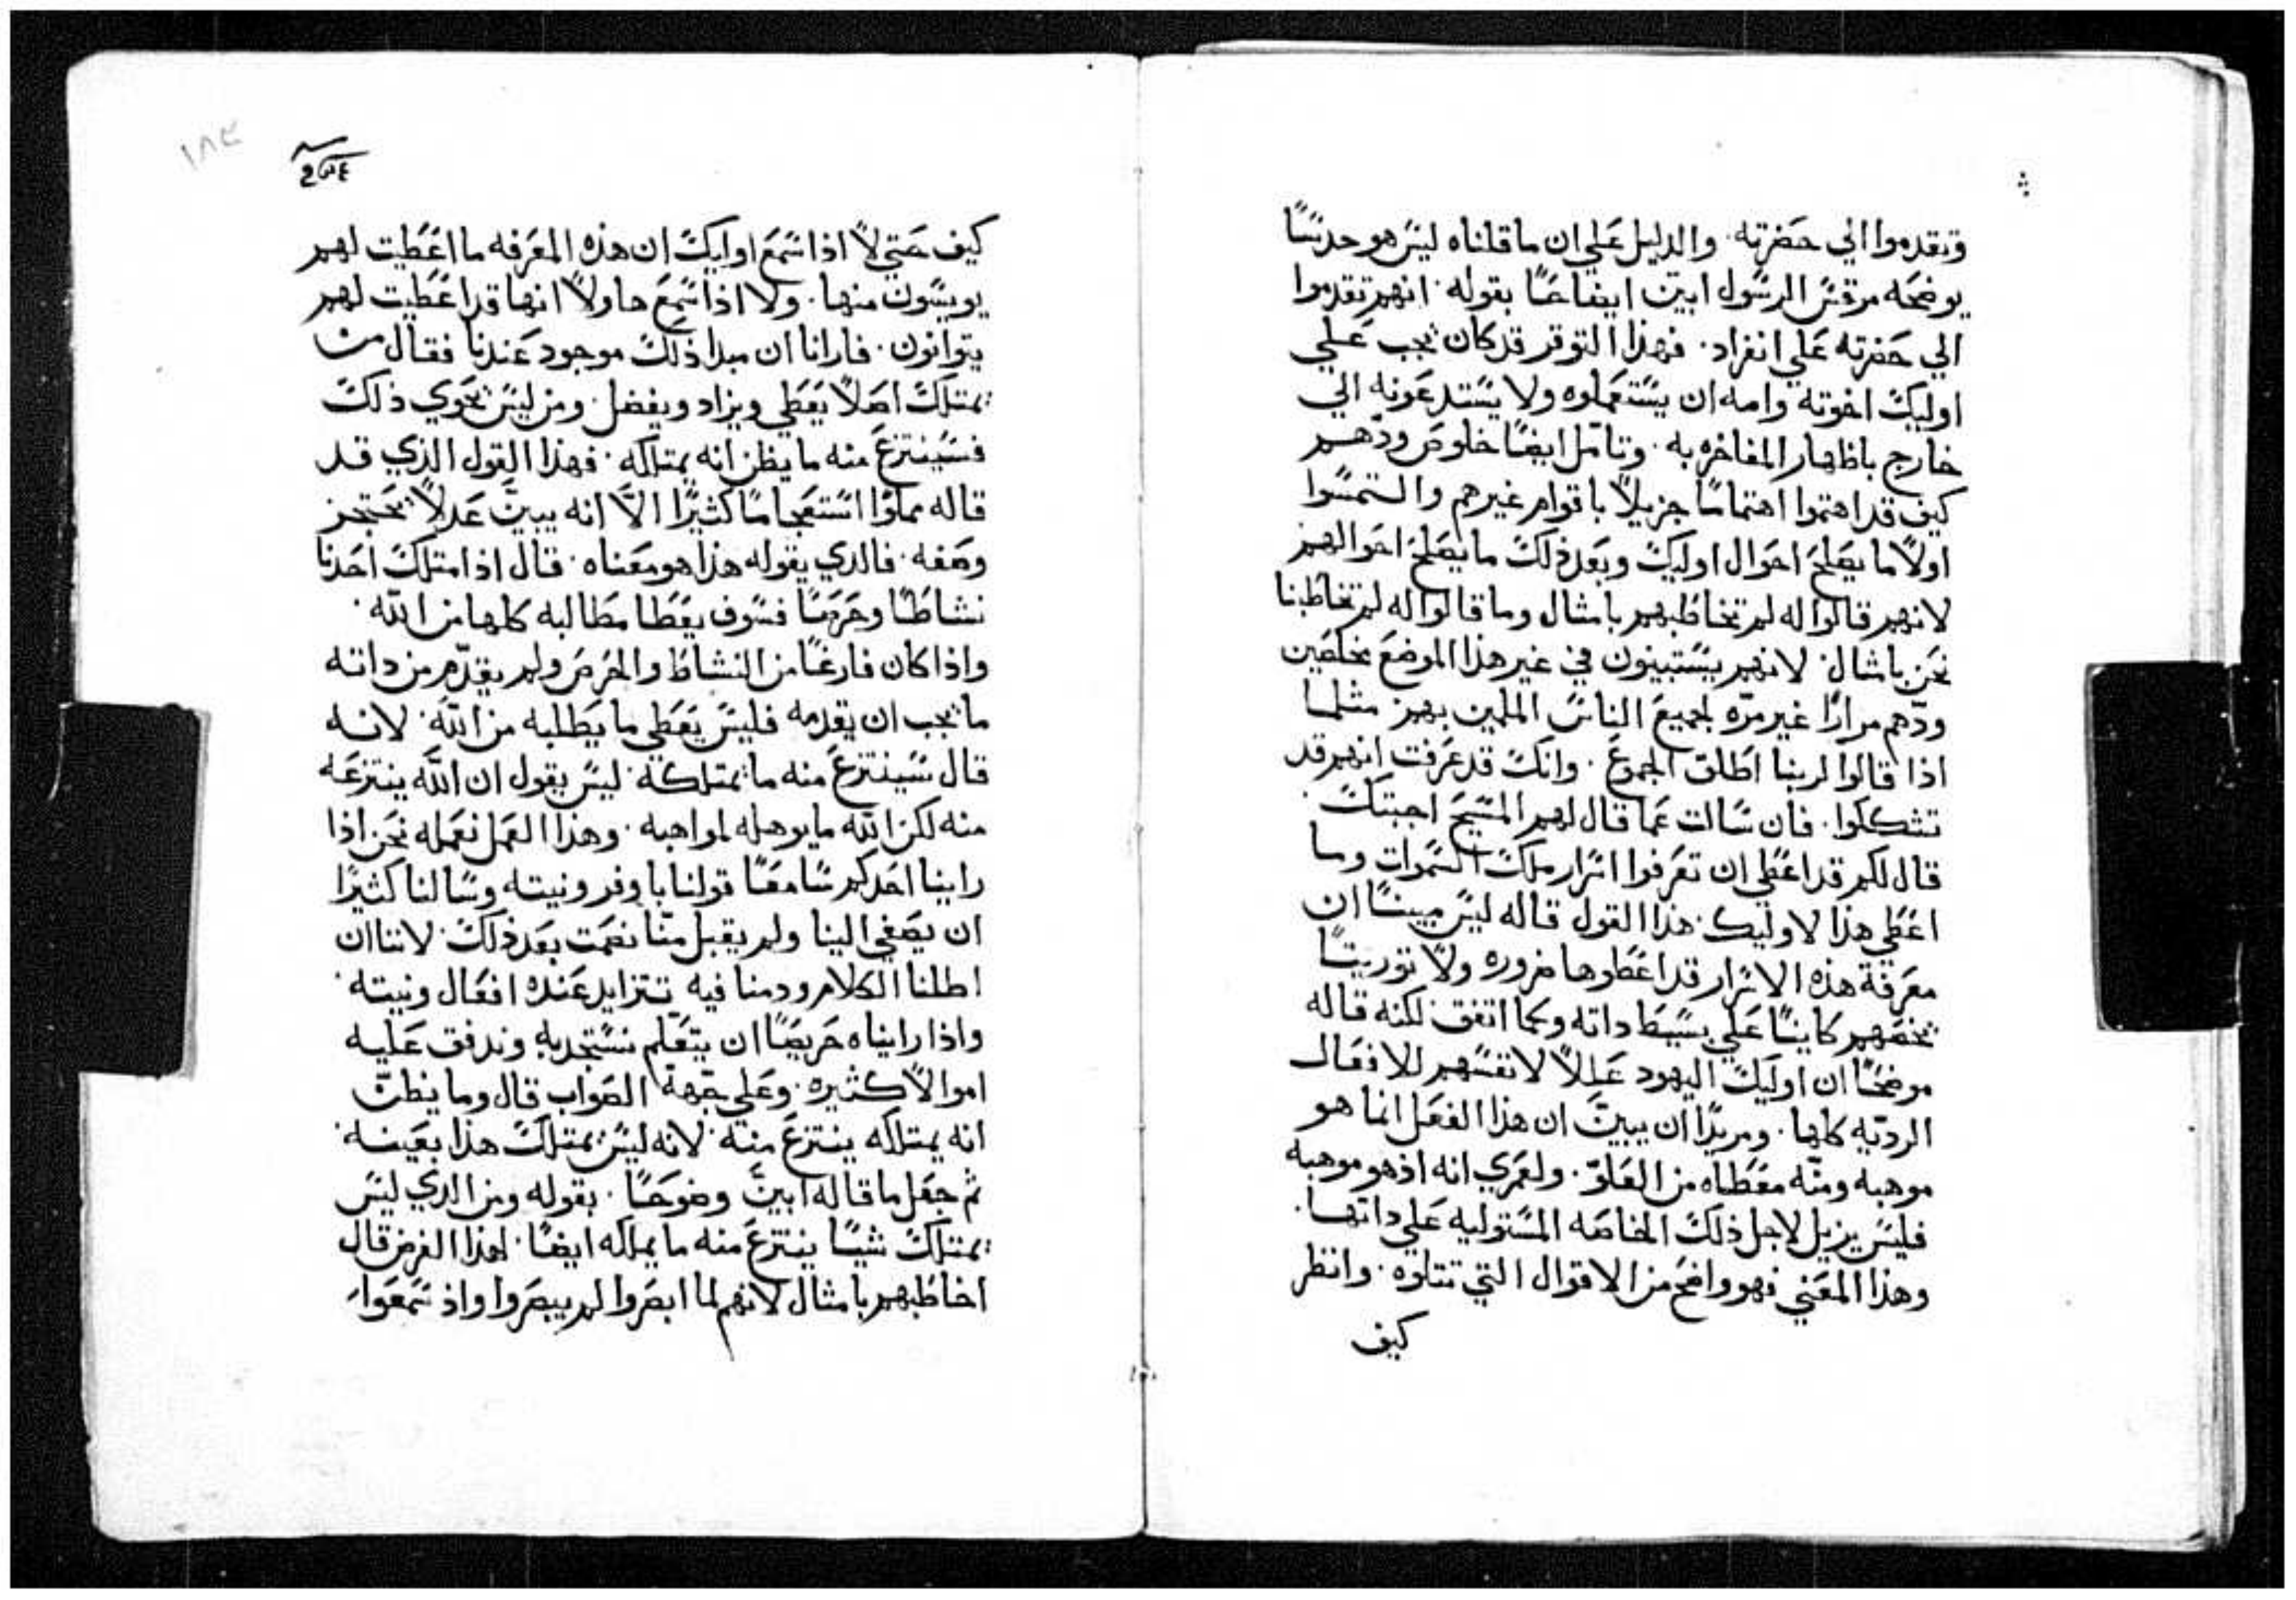 وتقدموا الي حضرته · والدليل علي ان ما قلناه ليس هو حدسًا
يوضحه مرقس الرسول ابين ايضاحًا بقوله · انهم تقدموا
الي حضرته علي انفراد · فهذا التوقر قد كان يجب علي
اوليك اخوته وامه ان يستعملوه ولا يستدعونه الي
خارج باظهار المفاخره به · وتامل ايضًا خلوص ودّهم
كيف قد اهتموا اهتمامًا جزيلاً باقوام غيرهم والتمسوا
اولاً ما يصلح احوال اوليك وبعد ذلك ما يصلح احوالهم
لانهم قالوا له لم تخاطبهم بامثال وما قالوا له لم تخاطبنا
نحن بامثال · لانهم يستبينون في غير هذا الموضع مخلصين
ودّهم مرارًا غير مرّه لجميع الناس الملمين بهم مثلما
اذا قالوا لربنا اطلق الجموع · وانك قد عرفت انهم قد
تشكلوا · فان سالت عما قال لهم المسيح اجبتك ·
قال لكم قد اعطي ان تعرفوا اسرار ملك السموات وما
اعطي هذا لاوليك · هذا القول قاله ليس مبينًا ان
معرفة هذه الاسرار قد اعطوها ضروره ولا توريثًا
يخصهم كاينًا علي بسيط داته وكما اتفق لكنه قاله
موضحًا ان اوليك اليهود عللاً لانفسهم للافعال
الرديّه كلها · ومريدًا ان يبين ان هذا الفعل انما هو
موهبه ومنّه معطاه من العلوّ · ولعمري انه اذ هو موهبه
فليس يزيل لاجل ذلك الخاصه المستوليه علي داتها ·
وهذا المعني فهو واضح من الاقوال التي تتلوه · وانظر
كيف
١٨٤
كيف حتي لا اذا سمع اوليك ان هذه المعرفه ما اعطيت لهم
يويسون منها · ولا اذا سمع هاولا انها قد اعطيت لهم
يتوانون · فارانا ان مبدا ذلك موجود عندنا فقال من
يمتلك اصلاً يعطي ويزاد ويفضل · ومن ليس يحوي ذلك
فسينتزع منه ما يظن انه يمتلكه · فهذا القول الذي قد
قاله مملوًا استعجامًا كثيرًا الاّ انه يبين عدلاً يحتجز
وصفه · فالدي يقوله هذا هو معناه · قال اذا امتلك احدنا
نشاطًا وحرصًا فسوف يعطا مطالبه كلها من الله ·
واذا كان فارغًا من النشاط والحرص ولم يقدّم من داته
ما يجب ان يقدمه فليس يعطي ما يطلبه من الله · لانه
قال سينتزع منه ما يمتلكه · ليس يقول ان الله ينتزعه
منه لكن الله ما يوهله لمواهبه · وهذا العمل نعمله نحن اذا
راينا احدكم سامعًا قولنا باوفر ونيته وسالنا كثيرًا
ان يصغي الينا ولم يقبل منّا نصمت بعد ذلك · لاننا ان
اطلنا الكلام ودمنا فيه تتزايد عنده افعال ونيته ·
واذا رايناه حريصًا ان يتعلم نستجدبه وندفق عليه
اموالاً كثيره · وعلي جهة الصواب قال وما يظنّ
انه يمتلكه ينتزع منه · لانه ليس يمتلك هذا بعينه ·
ثم جعل ما قاله ابين وضوحًا · بقوله ومن الدي ليس
يمتلك شيًا ينتزع منه ما يملكه ايضًا · لهذا الغرض قال
اخاطبهم بامثال لانهم لما ابصروا لم يبصروا واذ سمعوا